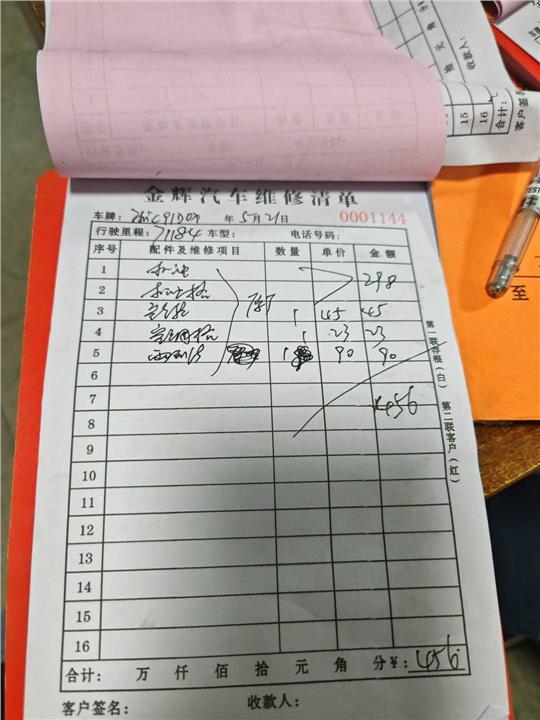 金辉汽车维修清单
车牌: 年5月21日 0001144
行驶里程:71184 车型: 电话号码:
序号 配件及维修项目 数量 单价 金额
1 机油 298
2 机油格
3 空气格 1 45 45
4 空调格 1 23 23
5 雨刮片 1 90 90
6
7 456
8
9
10
11
12
13
14
15
16
合计: 万 仟 佰 拾 元 角 分¥:456
客户签名: 收款人:
第一联存根(白) 第二联客户(红)
收款人:
拾 元 角
15
16
合计:
客户签名
至